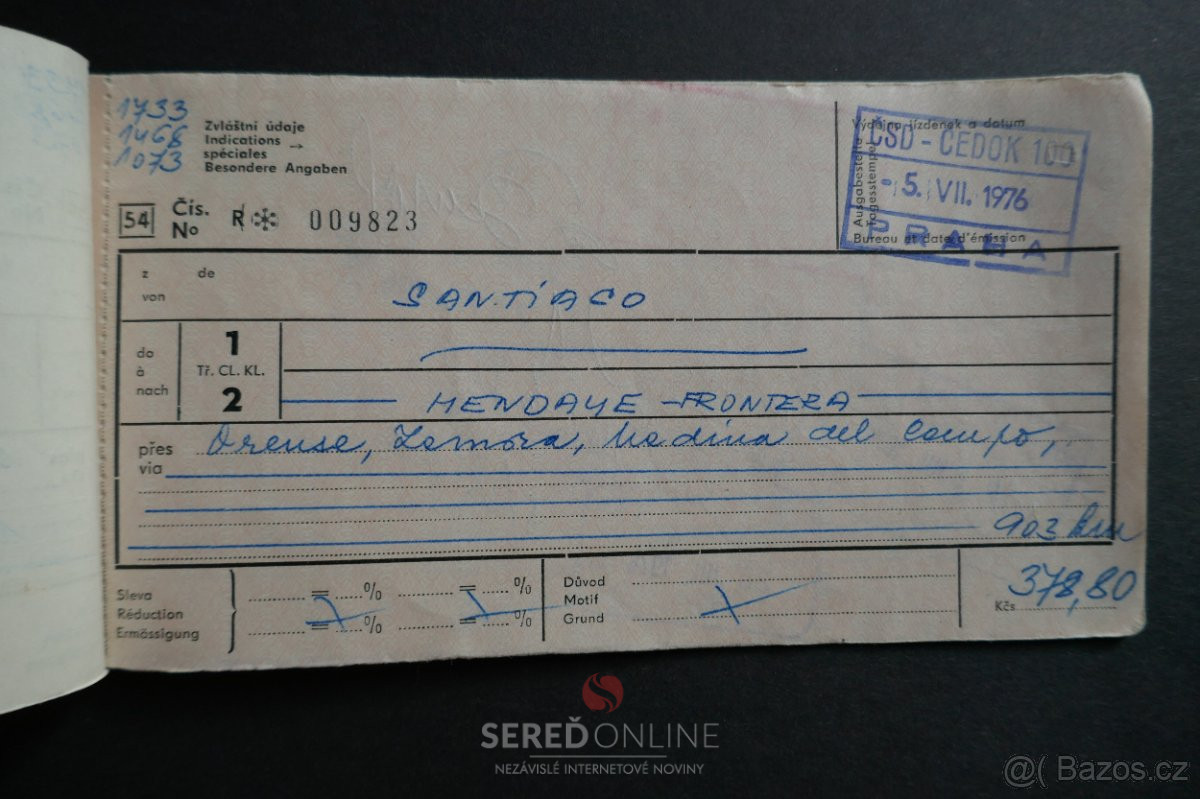 1733
1468
1073
Zvláštní údaje
Indications →
spéciales
Besondere Angaben
54 Čís. No R 009823
Výdejna jízdenek a datum
Ausgabestelle
Tagesstempel
Bureau et date d'émission
ČSD - ČEDOK 100
- 5. VII. 1976
PRAHA
z de
von
SANTIAGO
do
à
nach
1
Tř. CL. KL.
2
HENDAYE - FRONTERA
přes
via
Orense, Zamora, Medina del Campo,
903 km
Sleva
Réduction
Ermässigung
= %
= %
= %
= %
Důvod
Motif
Grund
Kčs 378,80
SEREĎ ONLINE
NEZÁVISLÉ INTERNETOVÉ NOVINY
@( Bazos.cz